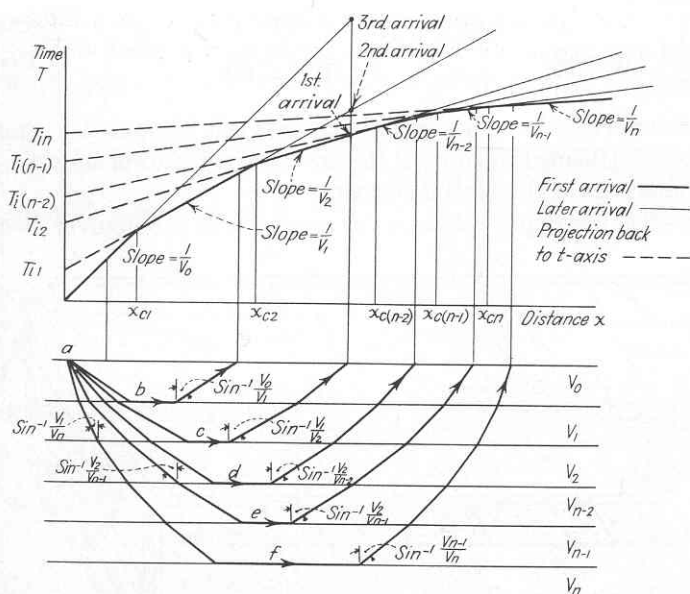 Time
T
3rd. arrival
2nd. arrival
1st. arrival
T_in
T_i(n-1)
T_i(n-2)
T_i2
T_i1
Slope=1/V_0
Slope=1/V_1
Slope=1/V_2
Slope=1/V_n-2
Slope=1/V_n-1
Slope=1/V_n
First arrival
Later arrival
Projection back
to t-axis
x_c1
x_c2
x_c(n-2)
x_c(n-1)
x_cn
Distance x
a
b
Sin⁻¹ V_0/V_1
V_0
Sin⁻¹ V_1/V_n
c
Sin⁻¹ V_1/V_2
V_1
Sin⁻¹ V_2/V_n-1
d
Sin⁻¹ V_2/V_n-2
V_2
e
Sin⁻¹ V_2/V_n-1
V_n-2
f
Sin⁻¹ V_n-1/V_n
V_n-1
V_n